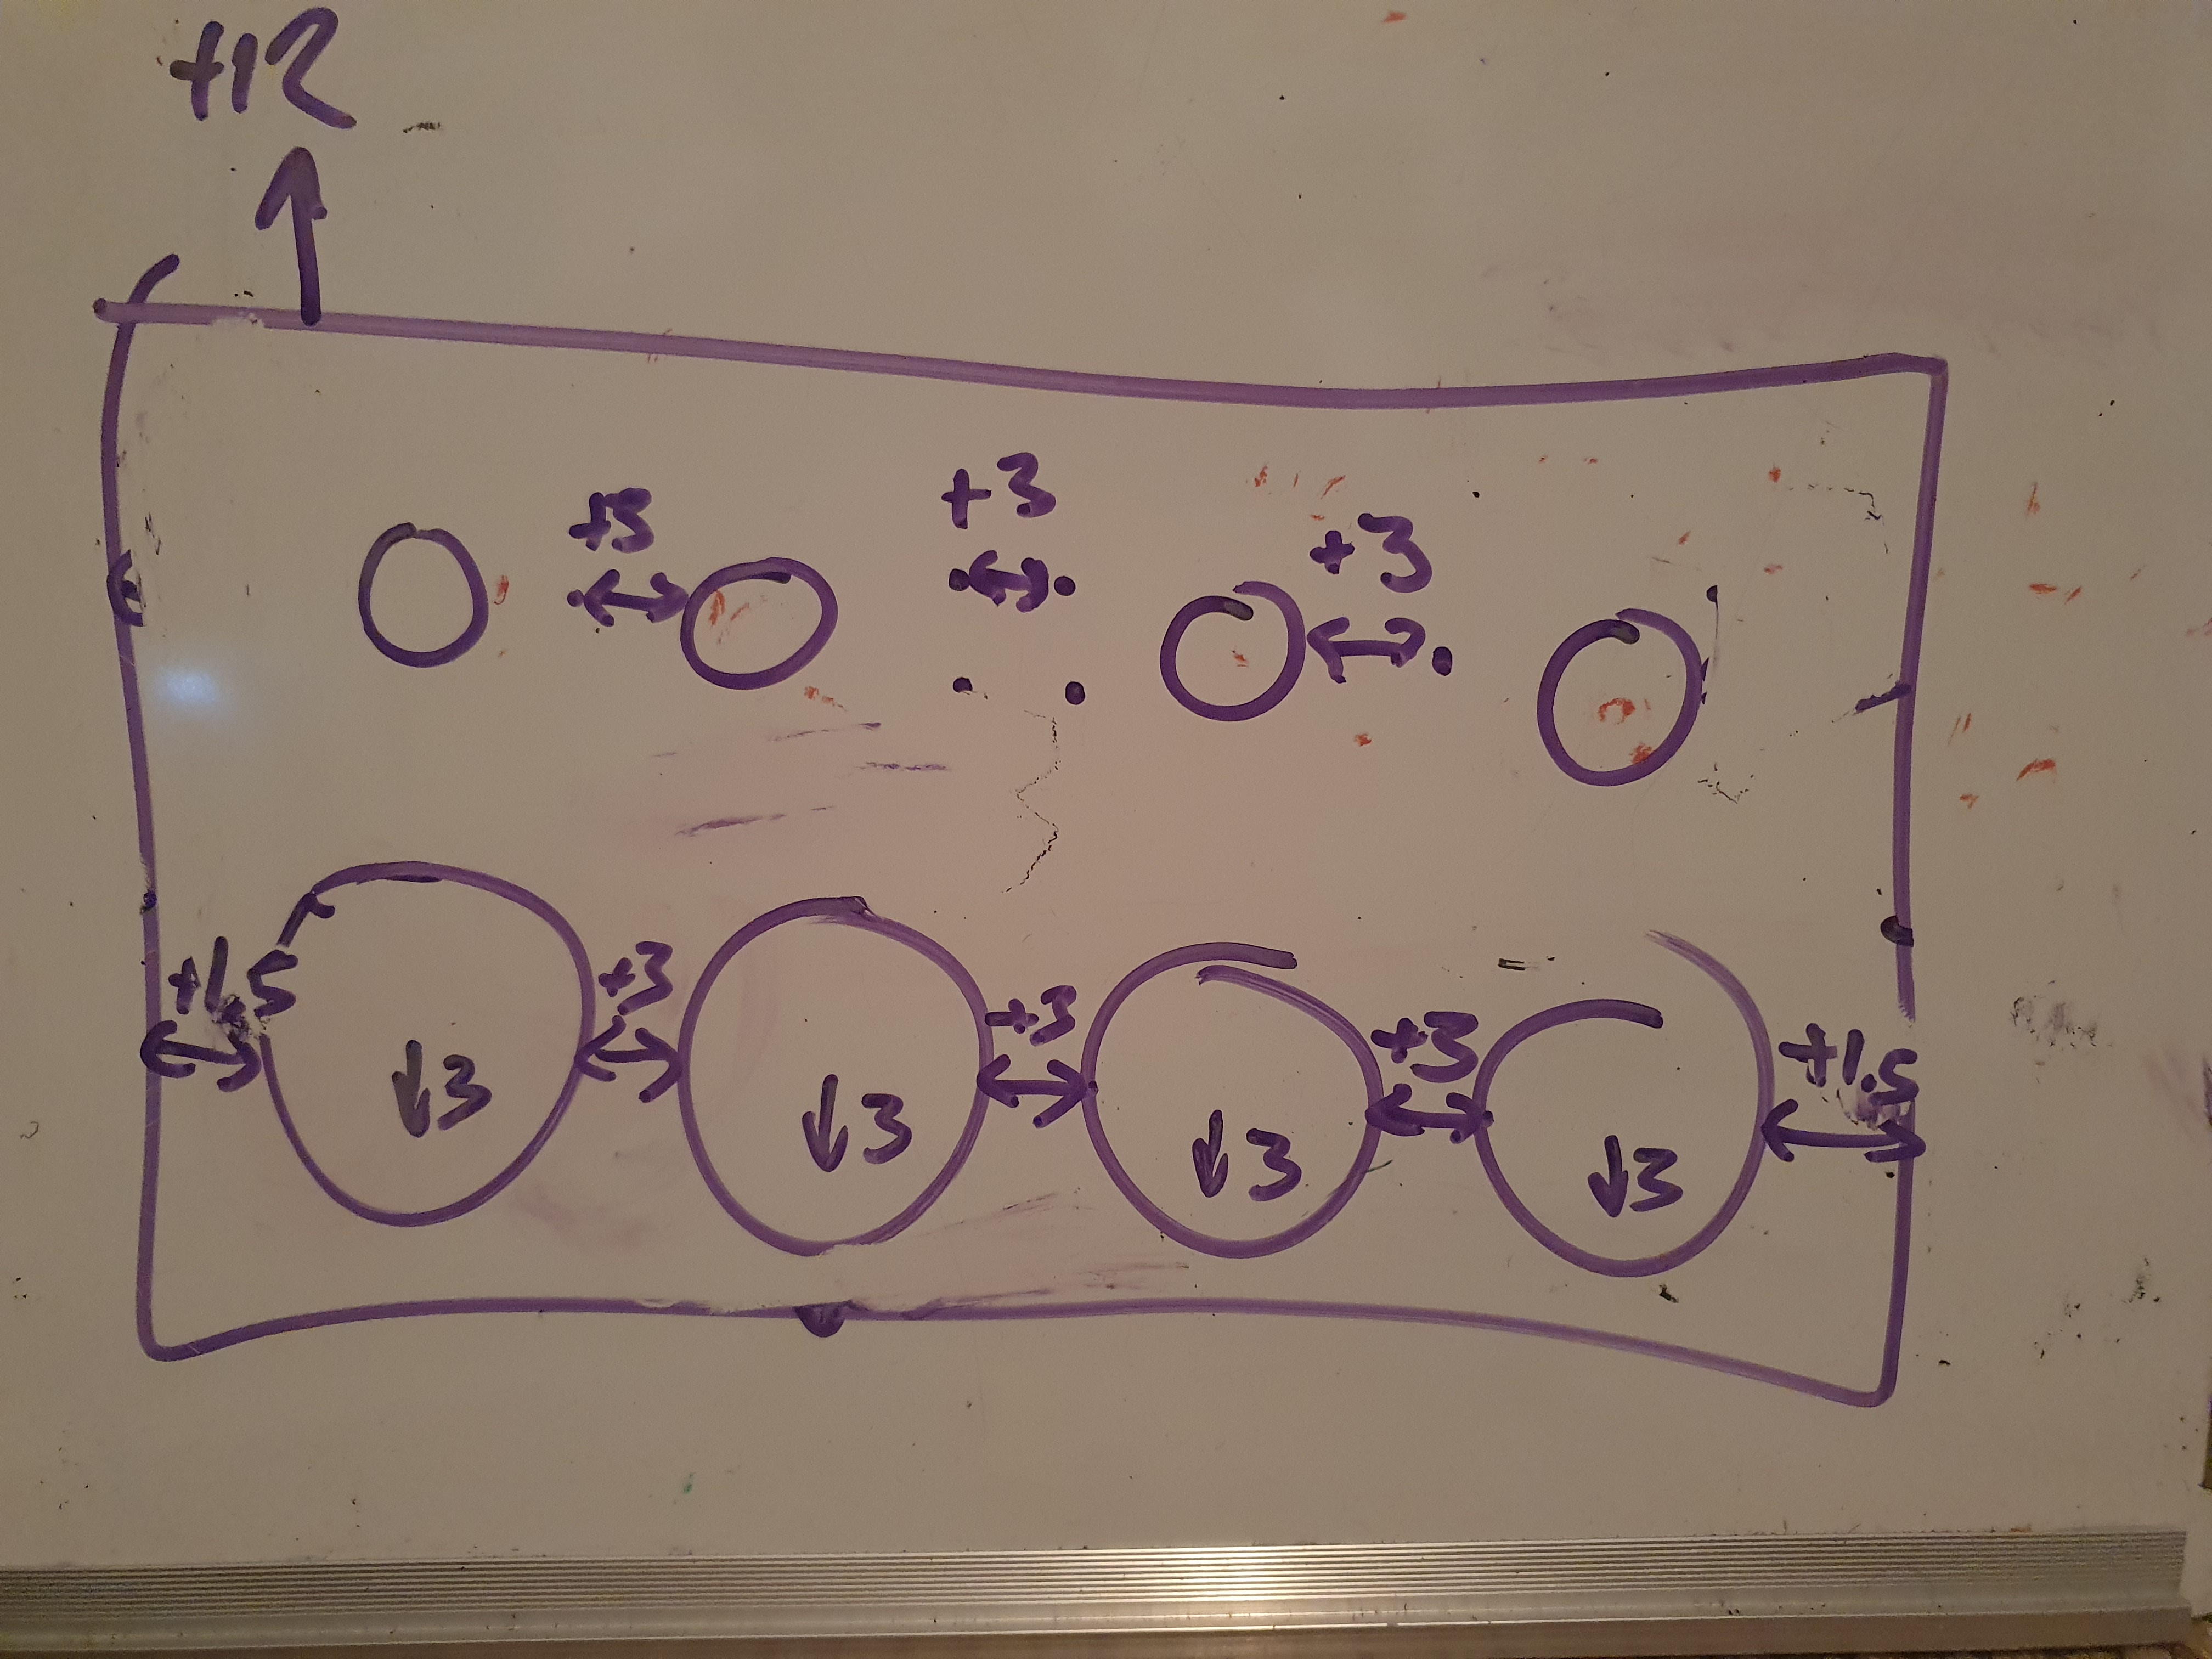 +12
+3 +3 +3
+1.5 +3 +3 +3 +1.5
↓3 ↓3 ↓3 ↓3